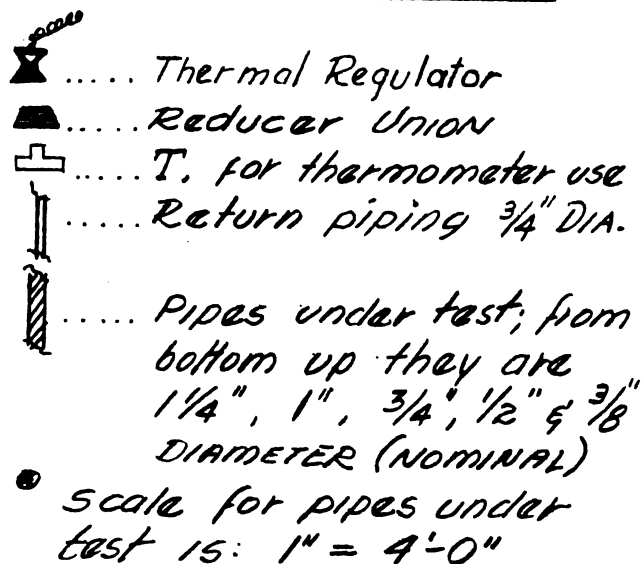 ..... Thermal Regulator
..... Reducer Union
..... T. for thermometer use
..... Return piping 3/4" DIA.
..... Pipes under test; from
bottom up they are
1 1/4", 1", 3/4", 1/2" & 3/8"
DIAMETER (NOMINAL)
• Scale for pipes under
test is: 1" = 4'-0"